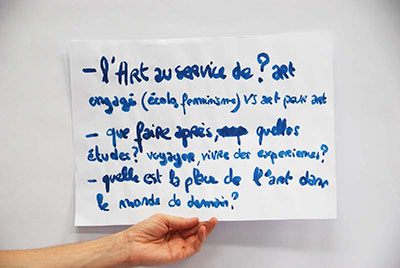 - l'Art au service de? art
engagé (écolo, féminisme) VS art pour art
- que faire après, quelles
études? voyager, vivre des expériences?
- quelle est la place de l'art dans
le monde de demain?